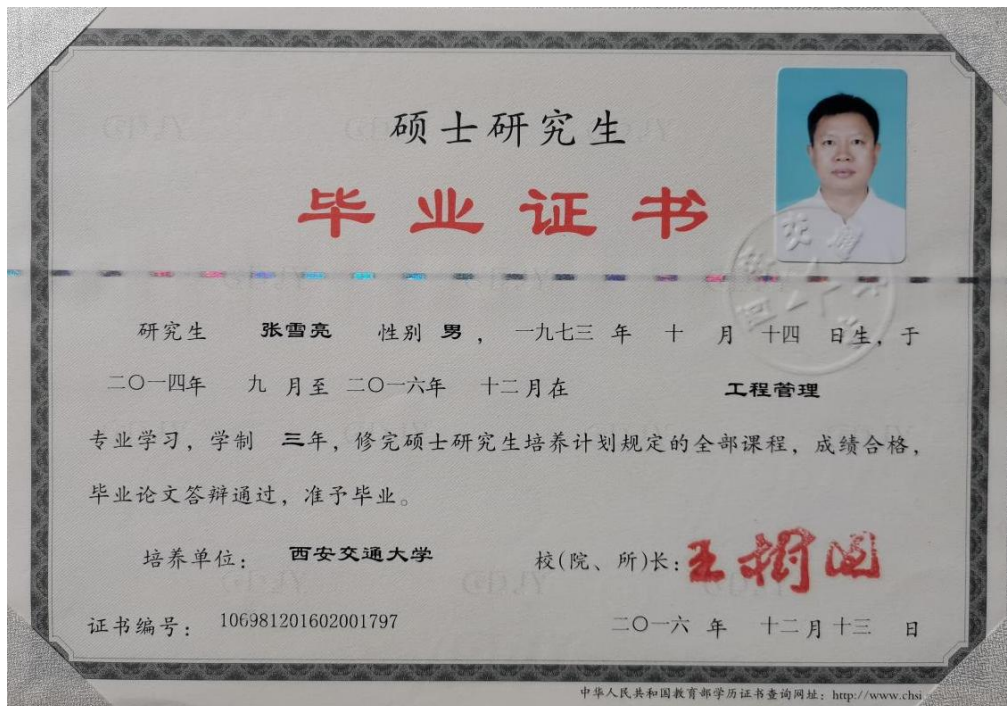 硕士研究生
毕业证书
研究生 张雪亮 性别 男 , 一九七三 年 十 月 十四 日生, 于
二〇一四年 九 月至 二〇一六年 十二月在 工程管理
专业学习, 学制 三年, 修完硕士研究生培养计划规定的全部课程, 成绩合格,
毕业论文答辩通过, 准予毕业。
培养单位: 西安交通大学 校(院、所)长: 王树国
证书编号: 106981201602001797 二〇一六 年 十二月十三 日
中华人民共和国教育部学历证书查询网址: http://www.chsi